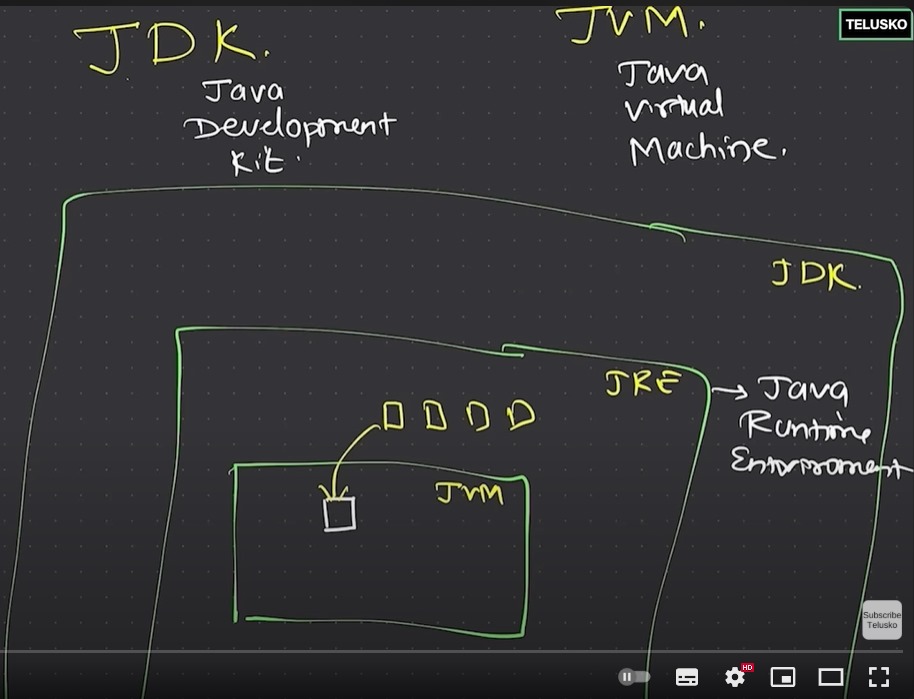 JDK.
Java
Development
Kit.
JVM.
Java
Virtual
Machine.
TELUSKO
JDK.
JRE
Java
Runtime
JVM
Subscribe
Telusko
HD